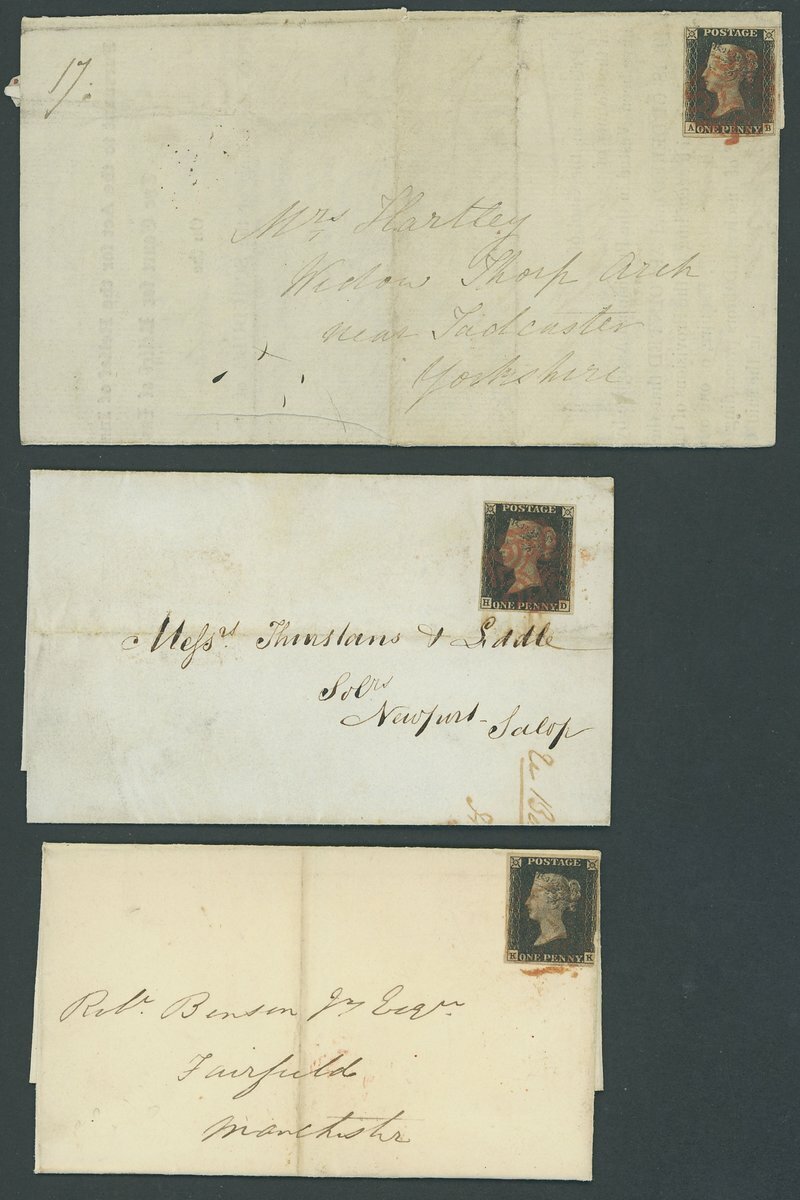 17.
POSTAGE
A ONE PENNY B
Mrs Hartley
Widow Thorp Arch
near Tadcaster
Yorkshire
POSTAGE
H ONE PENNY D
Messrs. Thurstans & Liddle
Solrs
Newport Salop
POSTAGE
K ONE PENNY K
Robt. Benson Jr Esqre
Fairfield
Manchester